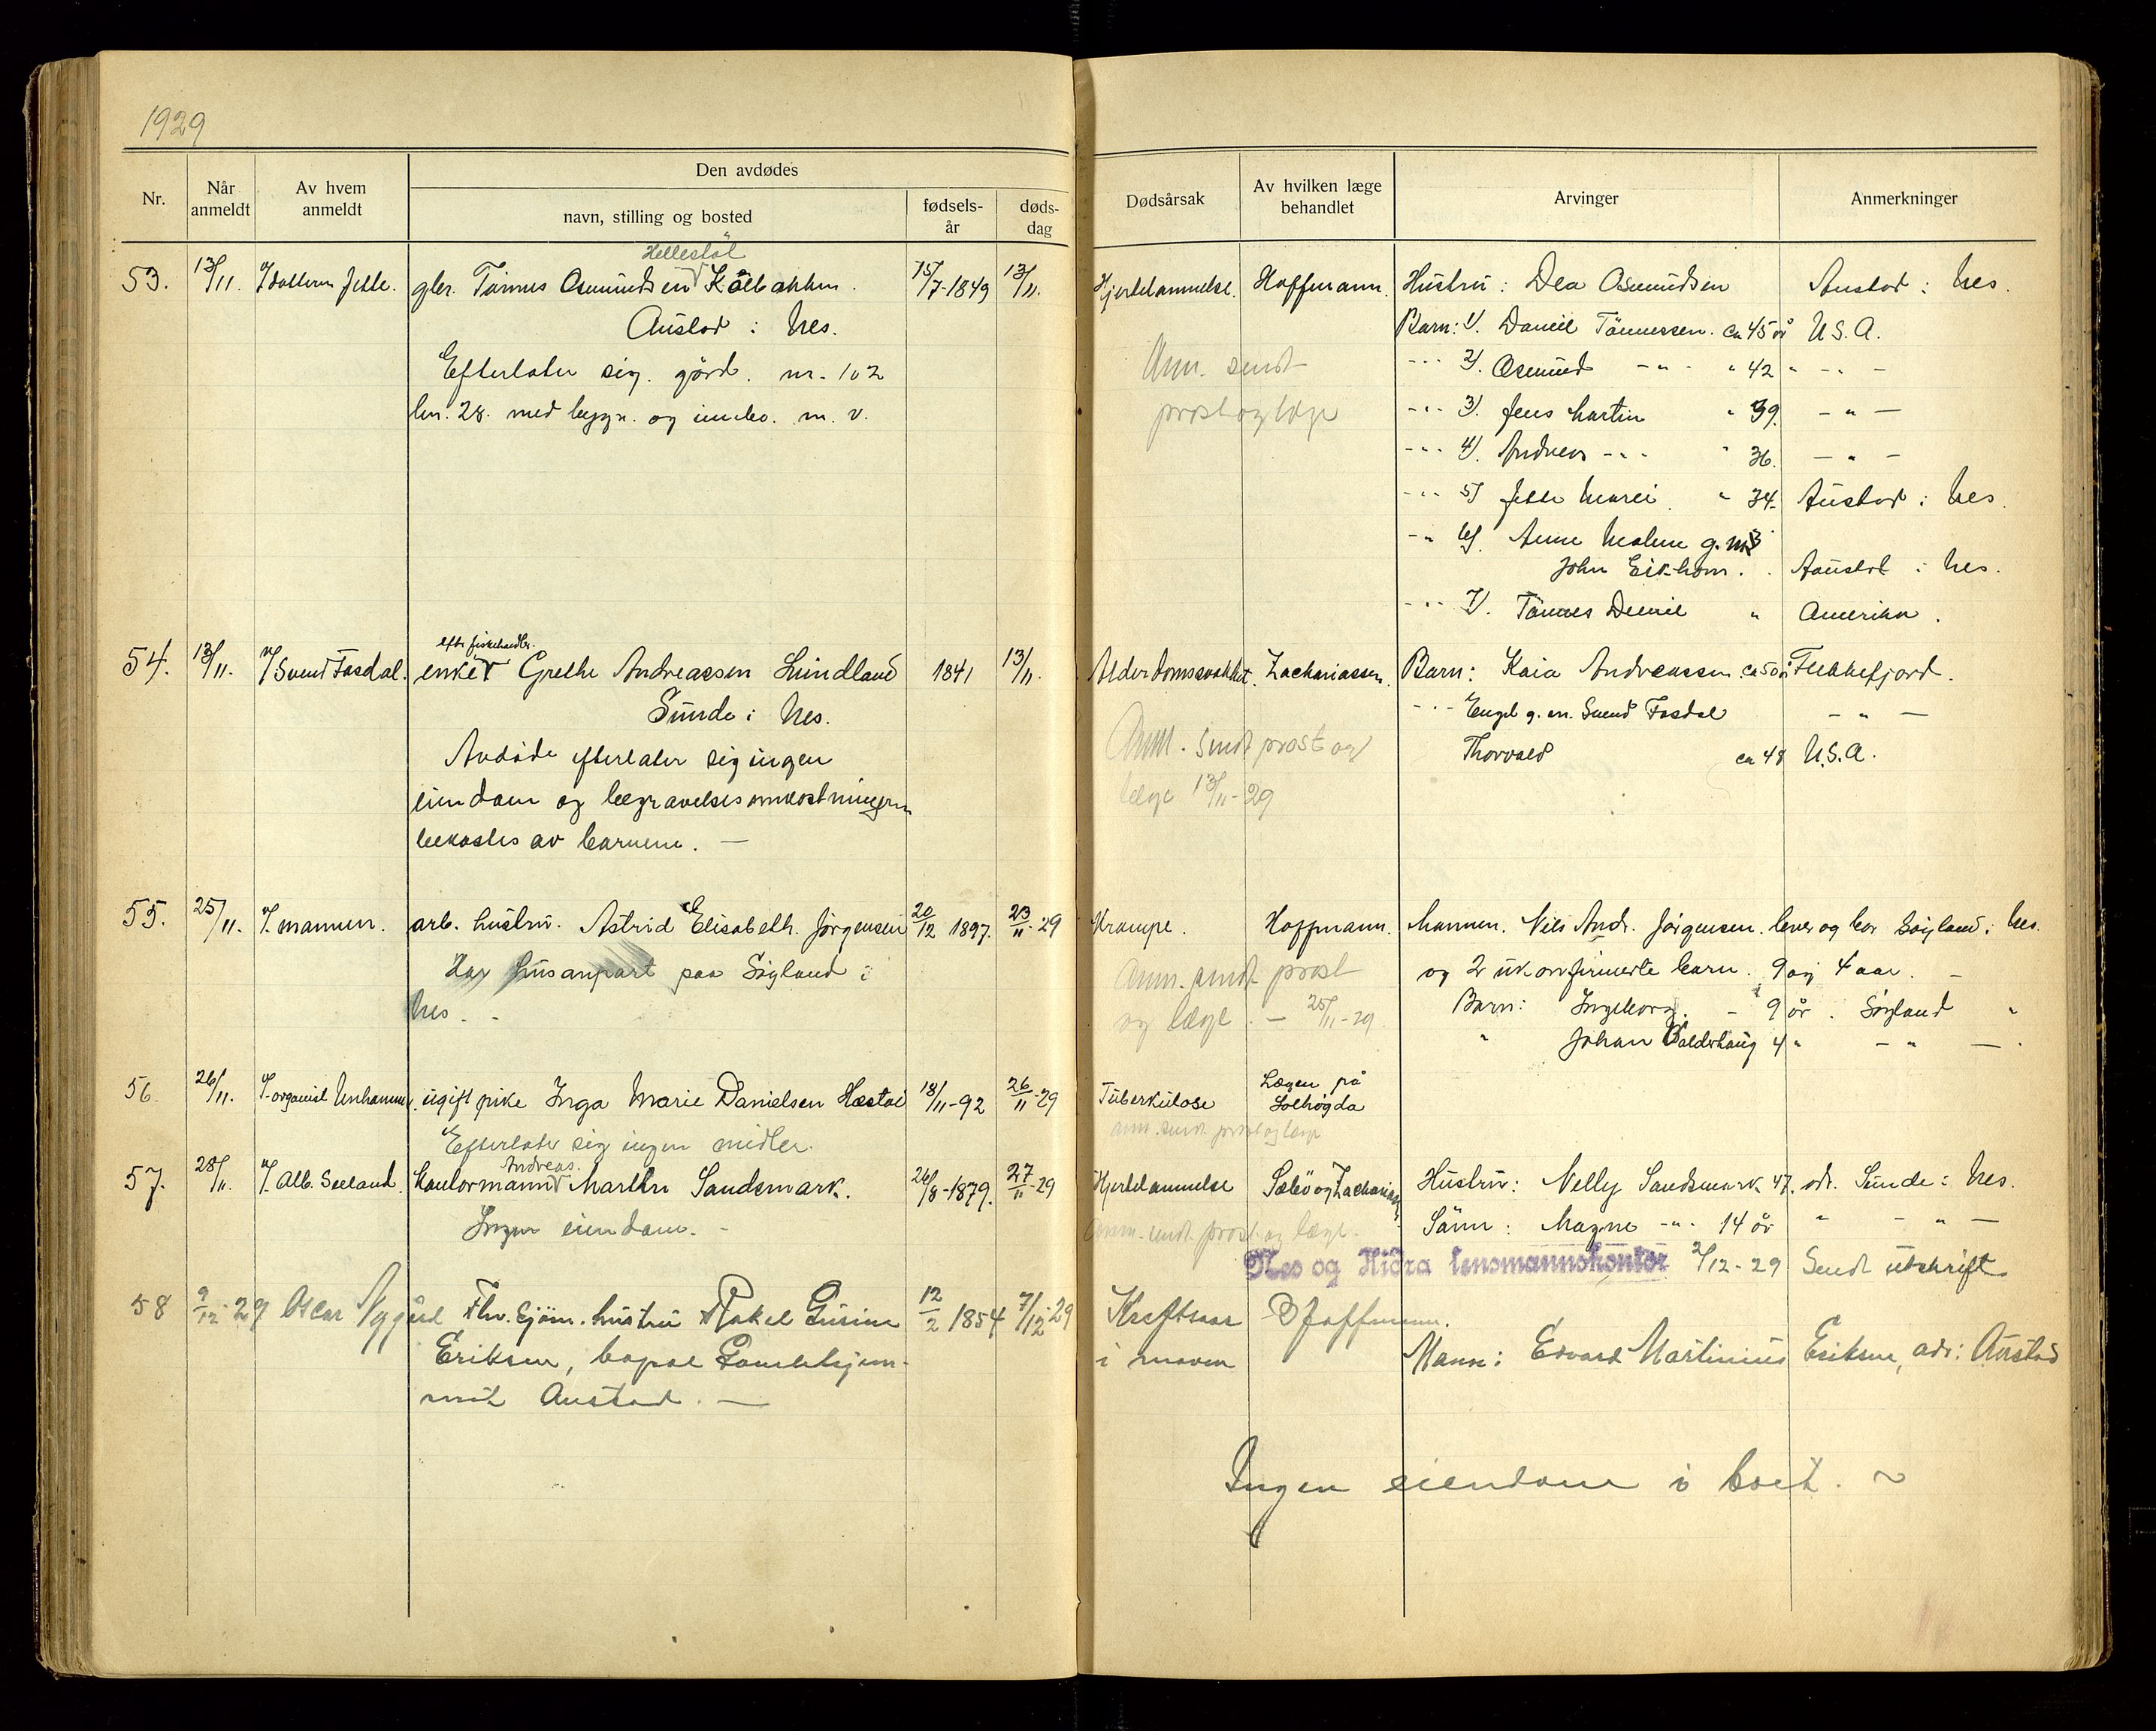 1929
Nr.
Når anmeldt
Av hvem anmeldt
Den avdødes
navn, stilling og bosted
fødsels-år
døds-dag
Dødsårsak
Av hvilken læge behandlet
Arvinger
Anmerkninger
Hellestöl
53. 13/11. v/ datteren Jette. gbr. Tönnes Osmundsen Kålbakken. 15/7-1849 13/11. Hjertelammelse. Hoffmann. Hustru: Dea Osmundsen Austad i Nes.
Austad i Nes. Barn: 1/. Daniel Tönnessen. ca 45 år U.S.A.
Efterlater sig gård. nr. 102 Anm. sendt --- 2/. Osmund -"- " 42 " -"-
bn. 28. med bygn. og innbo. m. v. prost og læge --- 3/. Jens Martin " 39. -"-
--- 4/. Andreas -"- " 36. -"-
--- 5/ Jette Marie " 34. Austad i Nes.
-" 6/. Anne Malene g. m.
John Eikhom. Austad i Nes.
--- 7/. Tönnes Daniel " Amerika.
efter fiskehandler.
54. 13/11. v/ Svend Fosdal. enke Grethe Andreassen Lundland 1841 13/11. Alderdomssvakhet. Zachariassen. Barn: Kaia Andreassen ca 50 år Flekkefjord.
Sunde i Nes. --- Engel g. m. Svend Fosdal -"-
Avdöde efterlater sig ingen Anm. sendt prost og Thorvald ca 48 U.S.A.
eiendom og begravelsesomkostningene læge 13/11-29
bekostes av barnene. —
55. 25/11. v/. mannen. arb. hustru. Astrid Elisabeth. Jørgensen 20/12 1897. 23/11-29 Krampe. Hoffmann. Mannen. Nils Andr. Jørgensen. lever og bor Søyland i Nes.
Har husanpart paa Søyland i Anm. sendt prost og 2 ukonfirmerte barn. 9 og 4 aar. -
Nes. - og læge. - 25/11-29 Barn: Ingeborg. - 9 år. Søyland "
" Johan Balderhaug 4 " -"-
56. 26/11. v/. organist Unhammer. ugift pike Inga Marie Danielsen Hæstøl 18/11-92 26/11-29 Tuberkulose Lægen på Solhøgda
Efterlater sig ingen midler. anm. sendt prost og læge
Andreas.
57. 28/11. v/. Alb. Seeland. kontormann Marthin Sandsmark. 26/8-1879. 27/11-29 Hjertelammelse Salvö og Zachariassen Hustru: Nelly Sandsmark 47. adr. Sunde i Nes.
Ingen eiendom. - Anm. sendt prost og læge. Sönn: Magne -"- 14 år " -"-
Nes og Hidra lensmannskontor 2/12-29 Sendt utskrift.
58 9/12-29 Oscar Nygård Fhv. sjöm. hustru Rakel Gusine 12/2 1854 7/12-29 Kreftsaar Hoffmann.
Eriksen, bopæl Gamlehjem- i maven Mann: Edvard Martinius Eriksen, adr: Austad
met Austad. —
Ingen eiendom i boet. ~